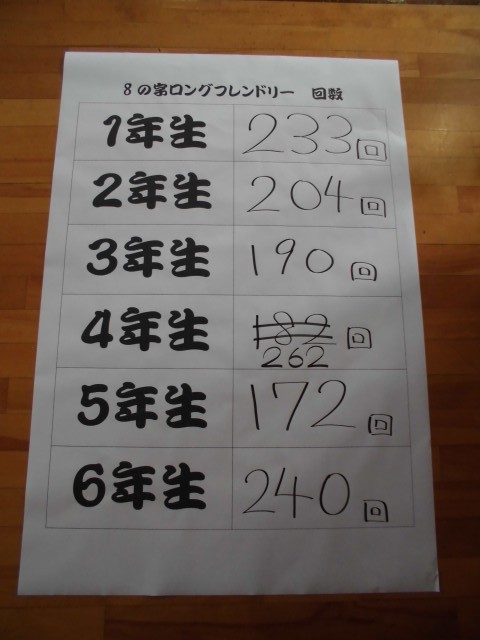 8の字ロングフレンドリー 回数
1年生 233回
2年生 204回
3年生 190回
4年生 182 回
262
5年生 172回
6年生 240回